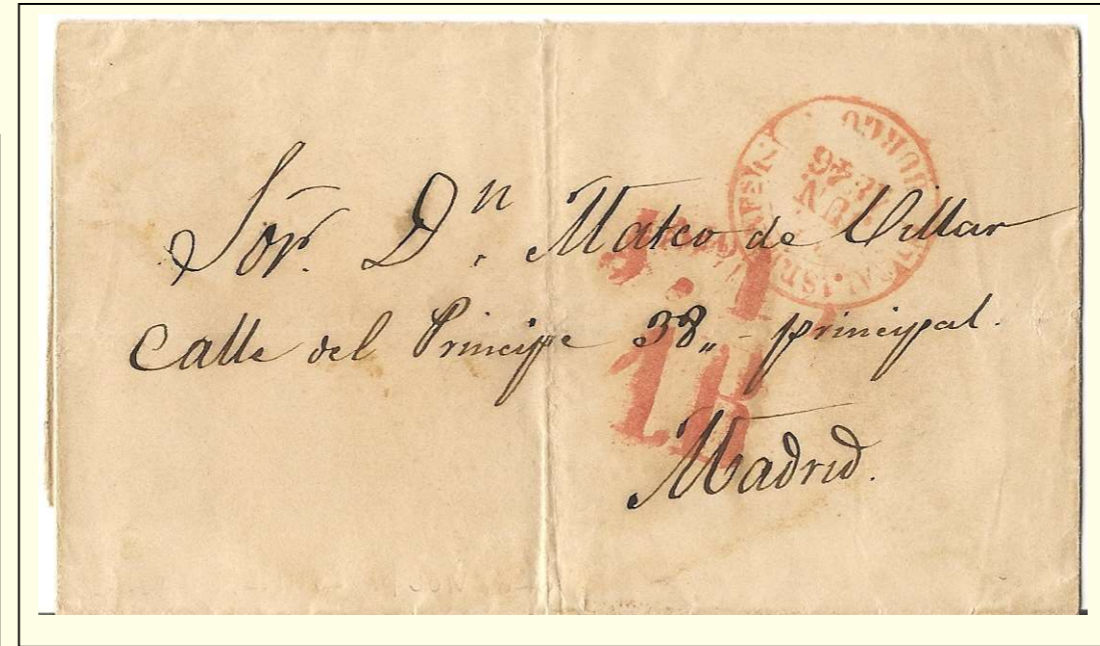 Sor. Dn. Mateo de Villar
Calle del Principe 38,, - principal.
Madrid.